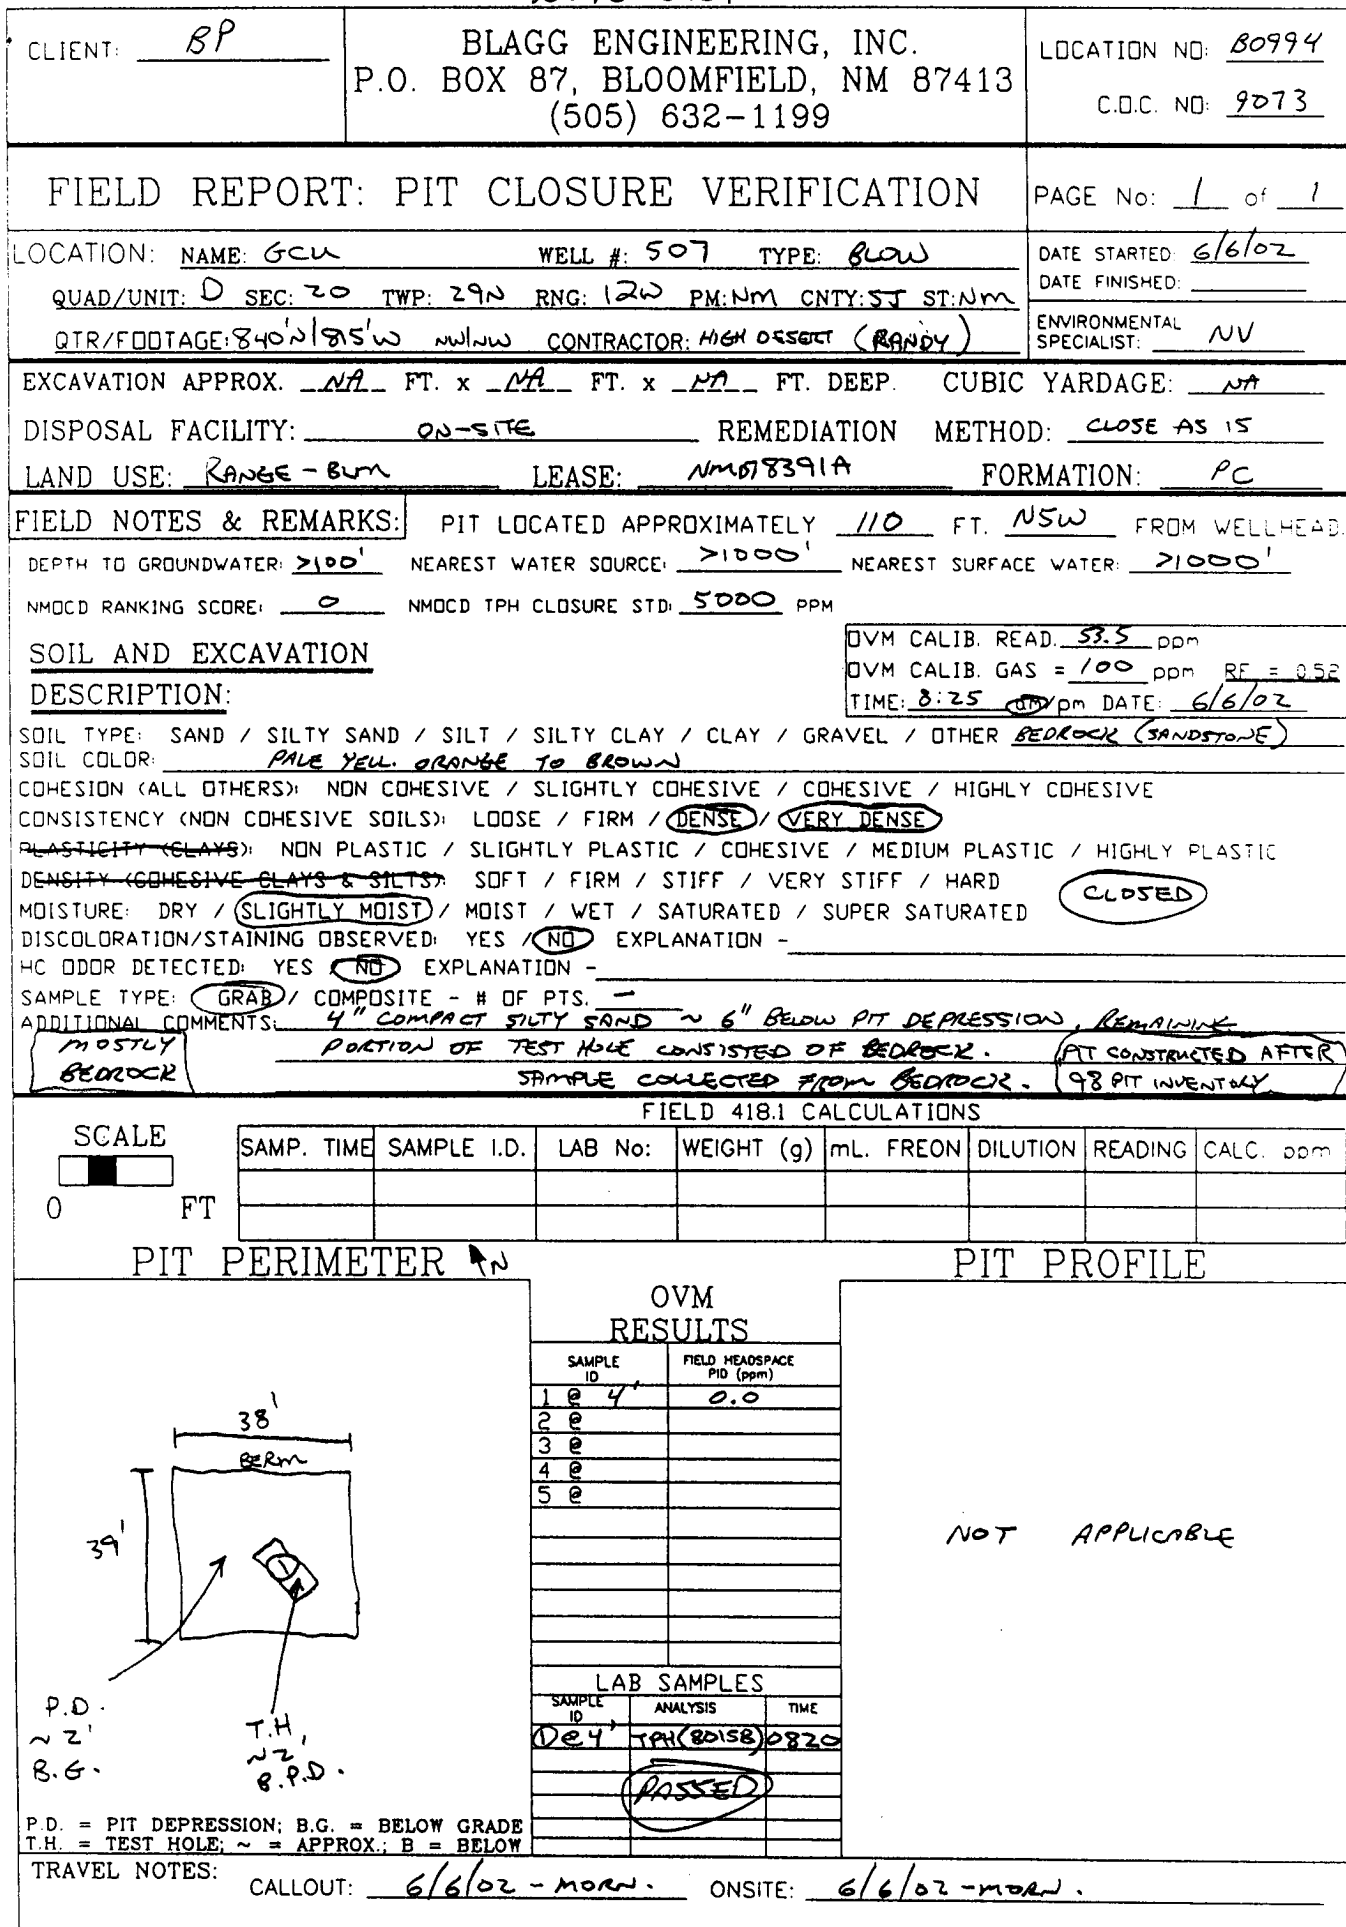 CLIENT: BP
BLAGG ENGINEERING, INC.
P.O. BOX 87, BLOOMFIELD, NM 87413
(505) 632-1199
LOCATION NO: B0994
C.O.C. NO: 9073
FIELD REPORT: PIT CLOSURE VERIFICATION
PAGE No: 1 of 1
LOCATION: NAME: GCU WELL #: 507 TYPE: BLOW
QUAD/UNIT: D SEC: 20 TWP: 29N RNG: 12W PM: NM CNTY: SJ ST: NM
QTR/FOOTAGE: 840'N/815'W NW/NW CONTRACTOR: HIGH DESERT (RANDY)
DATE STARTED: 6/6/02
DATE FINISHED:
ENVIRONMENTAL
SPECIALIST: NV
EXCAVATION APPROX. NA FT. x NA FT. x NA FT. DEEP. CUBIC YARDAGE: NA
DISPOSAL FACILITY: ON-SITE REMEDIATION METHOD: CLOSE AS IS
LAND USE: RANGE - BLM LEASE: NM078391A FORMATION: PC
FIELD NOTES & REMARKS: PIT LOCATED APPROXIMATELY 110 FT. N5W FROM WELLHEAD.
DEPTH TO GROUNDWATER: >100' NEAREST WATER SOURCE: >1000' NEAREST SURFACE WATER: >1000'
NMOCD RANKING SCORE: 0 NMOCD TPH CLOSURE STD: 5000 PPM
SOIL AND EXCAVATION
DESCRIPTION:
OVM CALIB. READ. 53.5 ppm
OVM CALIB. GAS = 100 ppm RF = 0.52
TIME: 8:25 am/pm DATE: 6/6/02
SOIL TYPE: SAND / SILTY SAND / SILT / SILTY CLAY / CLAY / GRAVEL / OTHER BEDROCK (SANDSTONE)
SOIL COLOR: PALE YELL. ORANGE TO BROWN
COHESION (ALL OTHERS): NON COHESIVE / SLIGHTLY COHESIVE / COHESIVE / HIGHLY COHESIVE
CONSISTENCY (NON COHESIVE SOILS): LOOSE / FIRM / DENSE / VERY DENSE
PLASTICITY (CLAYS): NON PLASTIC / SLIGHTLY PLASTIC / COHESIVE / MEDIUM PLASTIC / HIGHLY PLASTIC
DENSITY (COHESIVE CLAYS & SILTS): SOFT / FIRM / STIFF / VERY STIFF / HARD
CLOSED
MOISTURE: DRY / SLIGHTLY MOIST / MOIST / WET / SATURATED / SUPER SATURATED
DISCOLORATION/STAINING OBSERVED: YES / NO EXPLANATION -
HC ODOR DETECTED: YES / NO EXPLANATION -
SAMPLE TYPE: GRAB / COMPOSITE - # OF PTS. -
ADDITIONAL COMMENTS: 4" COMPACT SILTY SAND ~ 6" BELOW PIT DEPRESSION, REMAINING
PORTION OF TEST HOLE CONSISTED OF BEDROCK.
SAMPLE COLLECTED FROM BEDROCK.
MOSTLY
BEDROCK
PIT CONSTRUCTED AFTER
98 PIT INVENTORY
FIELD 418.1 CALCULATIONS
SCALE
0 FT
SAMP. TIME SAMPLE I.D. LAB No: WEIGHT (g) mL. FREON DILUTION READING CALC. ppm
PIT PERIMETER N
PIT PROFILE
OVM
RESULTS
SAMPLE ID FIELD HEADSPACE PID (ppm)
1 @ 4' 0.0
2 @
3 @
4 @
5 @
38'
BERM
39'
1
P.D.
~ 2'
B.G.
T.H.
~2'
B.P.D.
NOT APPLICABLE
LAB SAMPLES
SAMPLE ID ANALYSIS TIME
1@4' TPH(8015B) 0820
PASSED
P.D. = PIT DEPRESSION; B.G. = BELOW GRADE
T.H. = TEST HOLE; ~ = APPROX.; B = BELOW
TRAVEL NOTES: CALLOUT: 6/6/02 - MORN. ONSITE: 6/6/02 - MORN.